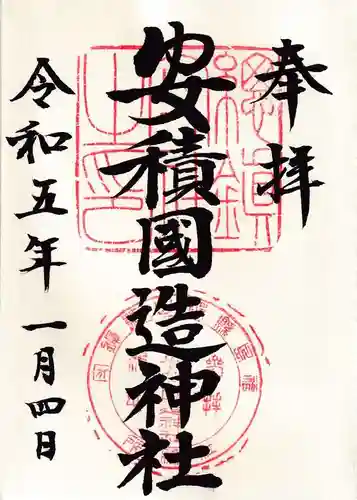 奉拝
安積國造神社
令和五年 一月四日